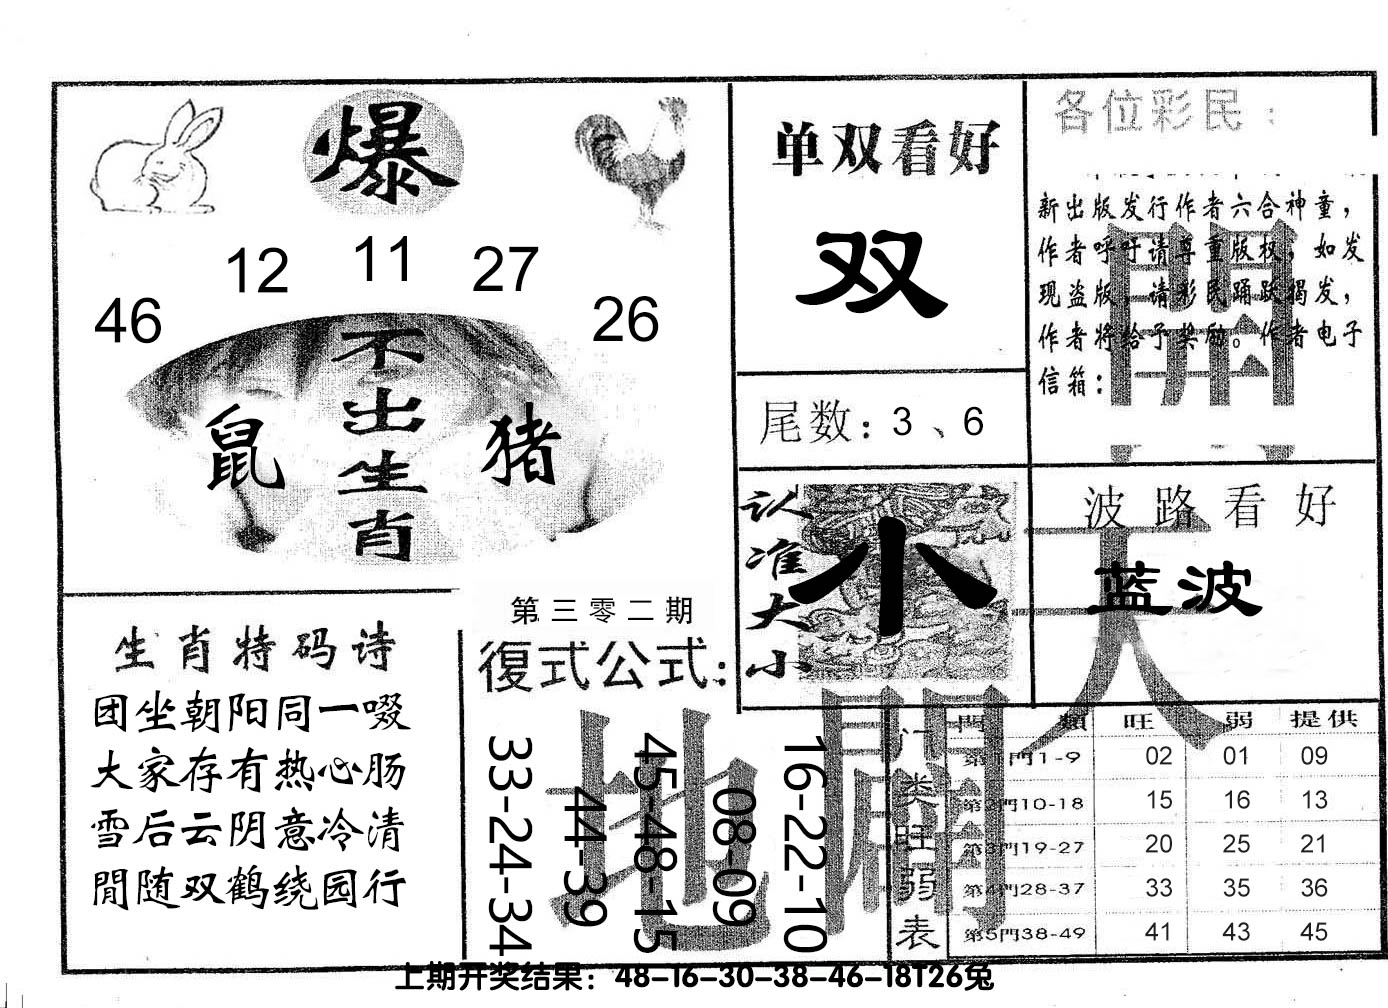 爆
46 12 11 27 26
不出生肖
鼠 猪
单双看好
双
尾数：3、6
各位彩民：
新出版发行作者六合神童，
作者呼吁请尊重版权，如发
现盗版，请彩民踊跃揭发，
作者将给予奖励。作者电子
信箱：
認准大小
小
波路看好
蓝波
生肖特码诗
团坐朝阳同一啜
大家存有热心肠
雪后云阴意冷清
閒随双鹤绕园行
第三零二期
復式公式：
33-24-34
44-39
45-48-15
08-09
16-22-10
地闢
天開
门类旺弱表
門類 旺 弱 提供
第1門1-9 02 01 09
第2門10-18 15 16 13
第3門19-27 20 25 21
第4門28-37 33 35 36
第5門38-49 41 43 45
上期开奖结果：48-16-30-38-46-18T26兔